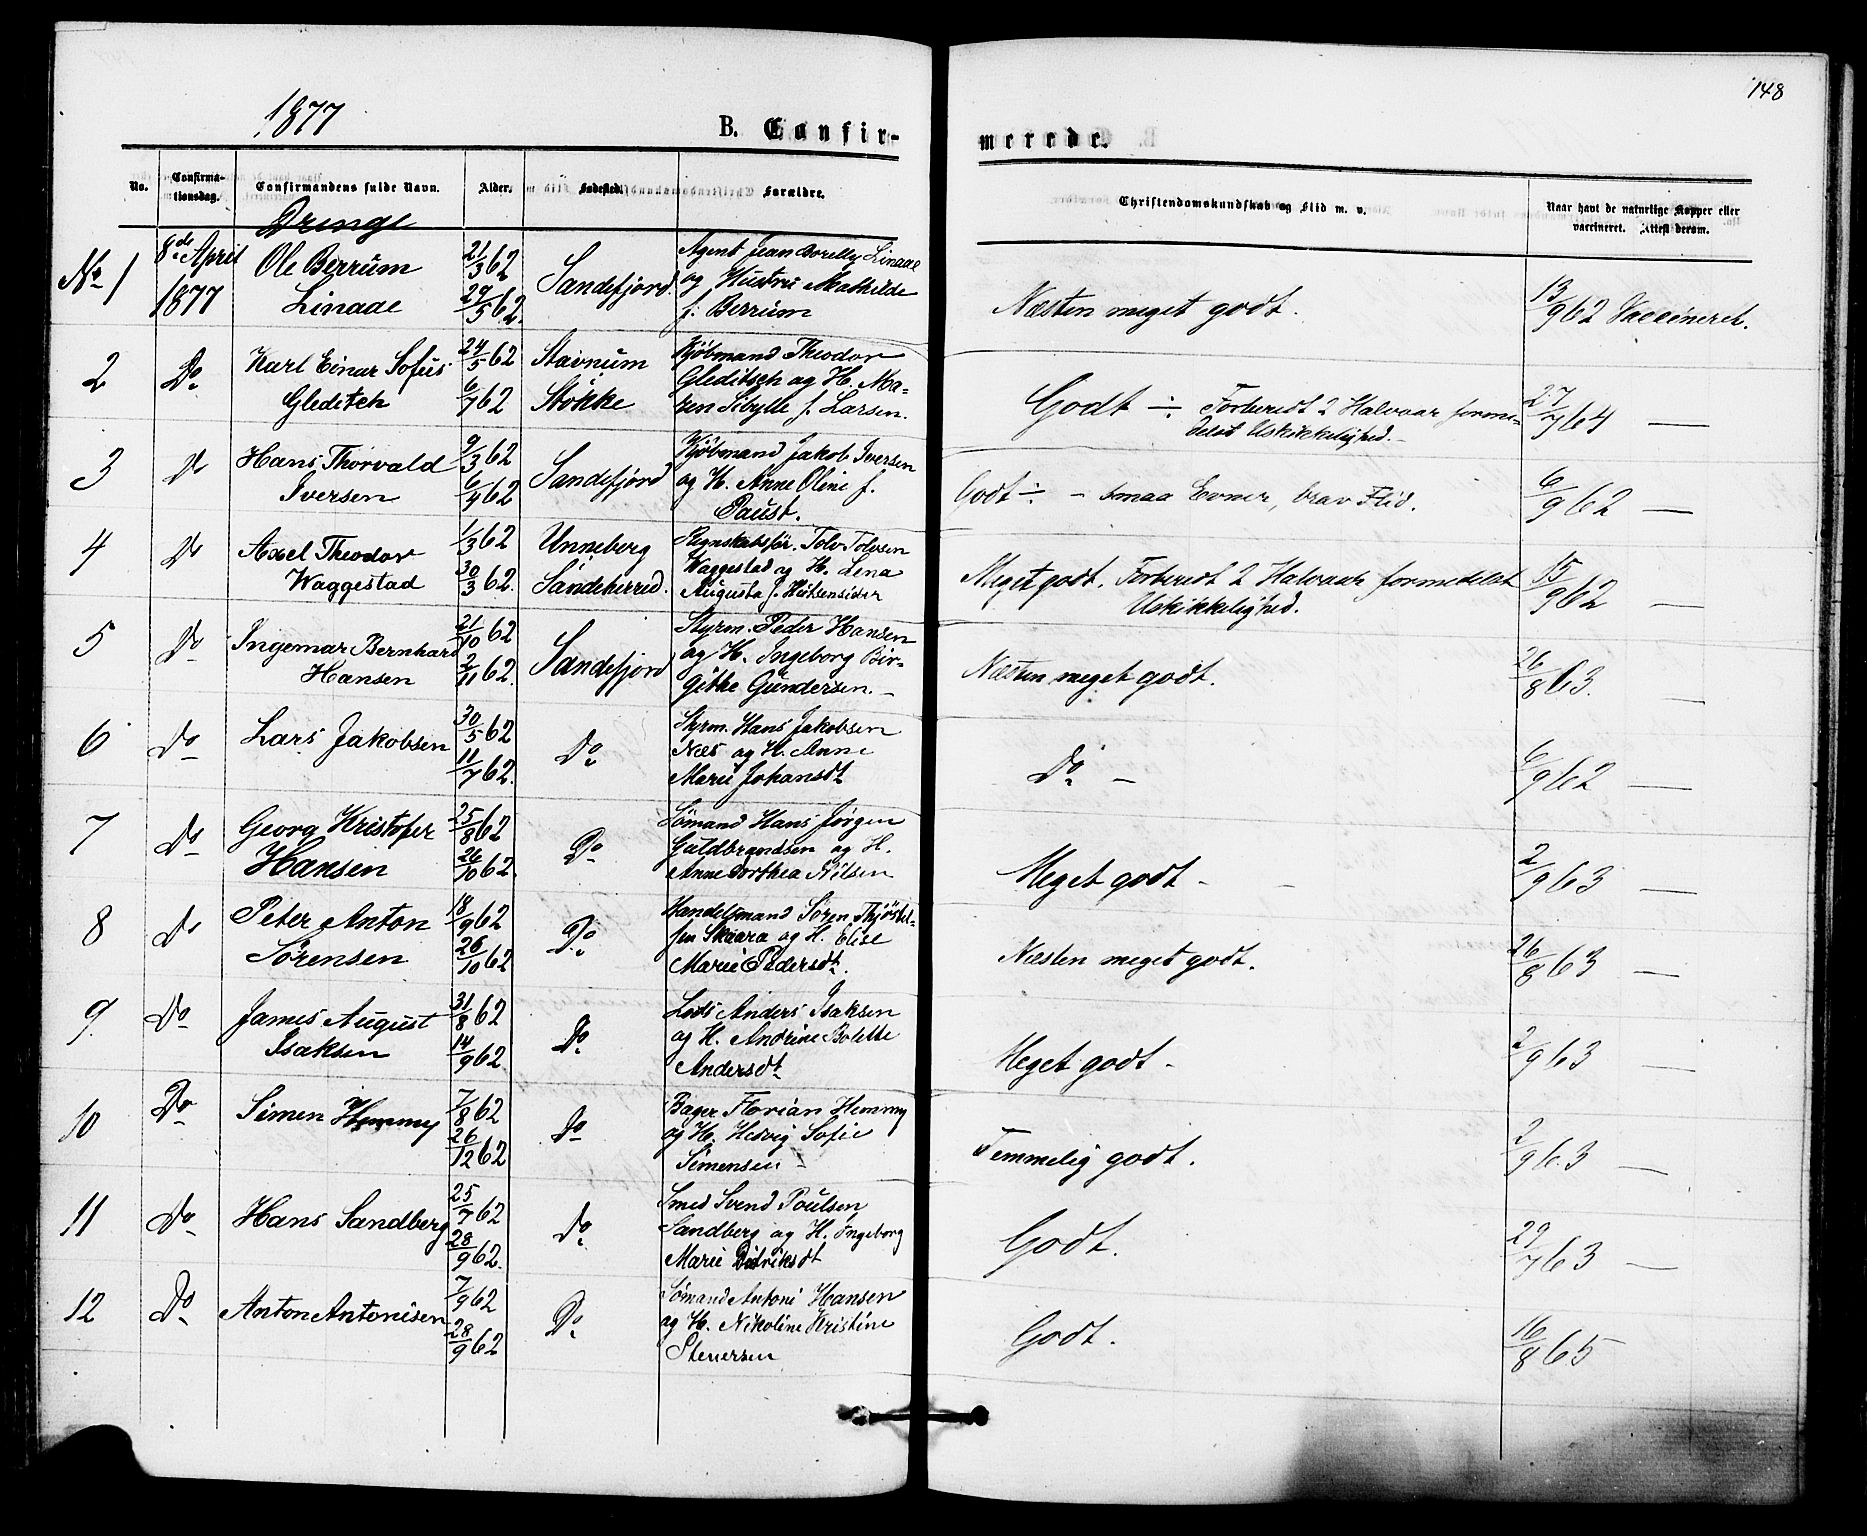 148
1877
B. Confir-
merede.
No.
Confirma-
tionsdag.
Confirmandens fulde Navn.
Alder.
Fødested.
Forældre.
Christendomskundskab og Flid m. v.
Naar havt de naturlige Kopper eller
vaccineret. Attest derom.
Drenge
No 1
8de April
1877
Ole Berrum
Linaae
21/3 62
29/5 62.
Sandefjord.
Agent Jean Borelly Linaae
og Hustru Mathilde
f. Berrum
Næsten meget godt.
13/9 62 Vaccineret.
2
Do
Karl Einar Sofus
Gleditsch
24/5 62
6/7 62
Stavnum
Stokke
Kjøbmand Theodor
Gleditsch og H. Ma-
ren Sibylle f. Larsen.
Godt ÷ Forberedt 2 Halvaar forme-
delst Uskikkelighed.
27/7 64 —
3
Do
Hans Thorvald
Iversen
9/3 62
6/4 62
Sandefjord
Kjøbmand Jakob Iversen
og H. Anne Oline f.
Paust.
Godt ÷ - smaa Evner, brav Flid.
6/9 62 —
4
Do
Axel Theodor
Waggestad
1/3 62
30/3 62.
Unneberg
Sandeherred.
Regnskabsfør. Tolv Tolvsen
Waggestad og H. Lena
Augusta f.
Meget godt. Forberedt 2 Halvaar formedelst
Uskikkelighed.
15/9 62 —
5
Do
Ingemar Bernhard
Hansen
21/10 62
2/11 62.
Sandefjord
Styrm. Peder Hansen
og H. Ingeborg Bir-
gitte Gundersen. -
Næsten meget godt.
26/8 63. —
6
Do
Lars Jakobsen
30/5 62
11/7 62.
Do
Styrm. Hans Jakobsen
Næs og H. Anne
Marie Johansdt
Do -
6/9 62 —
7
Do
Georg Kristofer
Hansen
25/8 62
26/10 62.
Do
Sömand Hans Jørgen
Guldbrandsen og H.
Anne Dorthea Nilsen
Meget godt -
2/9 63 —
8
Do
Peter Anton
Sørensen
18/9 62
26/10 62
Do
Handelsmand Sören Thjöstel-
sen Skaara og H. Elise
Marie Pedersdt.
Næsten meget godt.
26/8 63 —
9
Do
James August
Isaksen
31/8 62
14/9 62
Do
Lods Anders Isaksen
og H. Andrine Bolette
Andersdt.
Meget godt -
2/9 63 —
10
Do
Simen Hemmy
7/8 62
26/12 62
Do
Bager Florian Hemmy
og H. Hedvig Sofie
Simensen -
Temmelig godt.
2/9 63 —
11
Do
Hans Sandberg
25/7 62
28/9 62.
Do
Smed Svend Poulsen
Sandberg og H. Ingeborg
Marie Didriksdt
Godt.
29/7 63 —
12
Do
Anton Antonisen
7/9 62
28/9 62
Do
Sømand Antoni Hansen
og H. Nikoline Kristine
Stenersen
Godt.
16/8 65